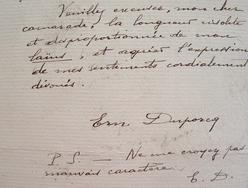 Veuillez excuser, mon cher
camarade, la longueur visible
et disproportionnée de mon
laïus, et agréer l'expression
de mes sentiments cordialement
dévoués.
Ern Duporcq
P.S. — Ne me croyez pas
mauvais caractère.
E. D.